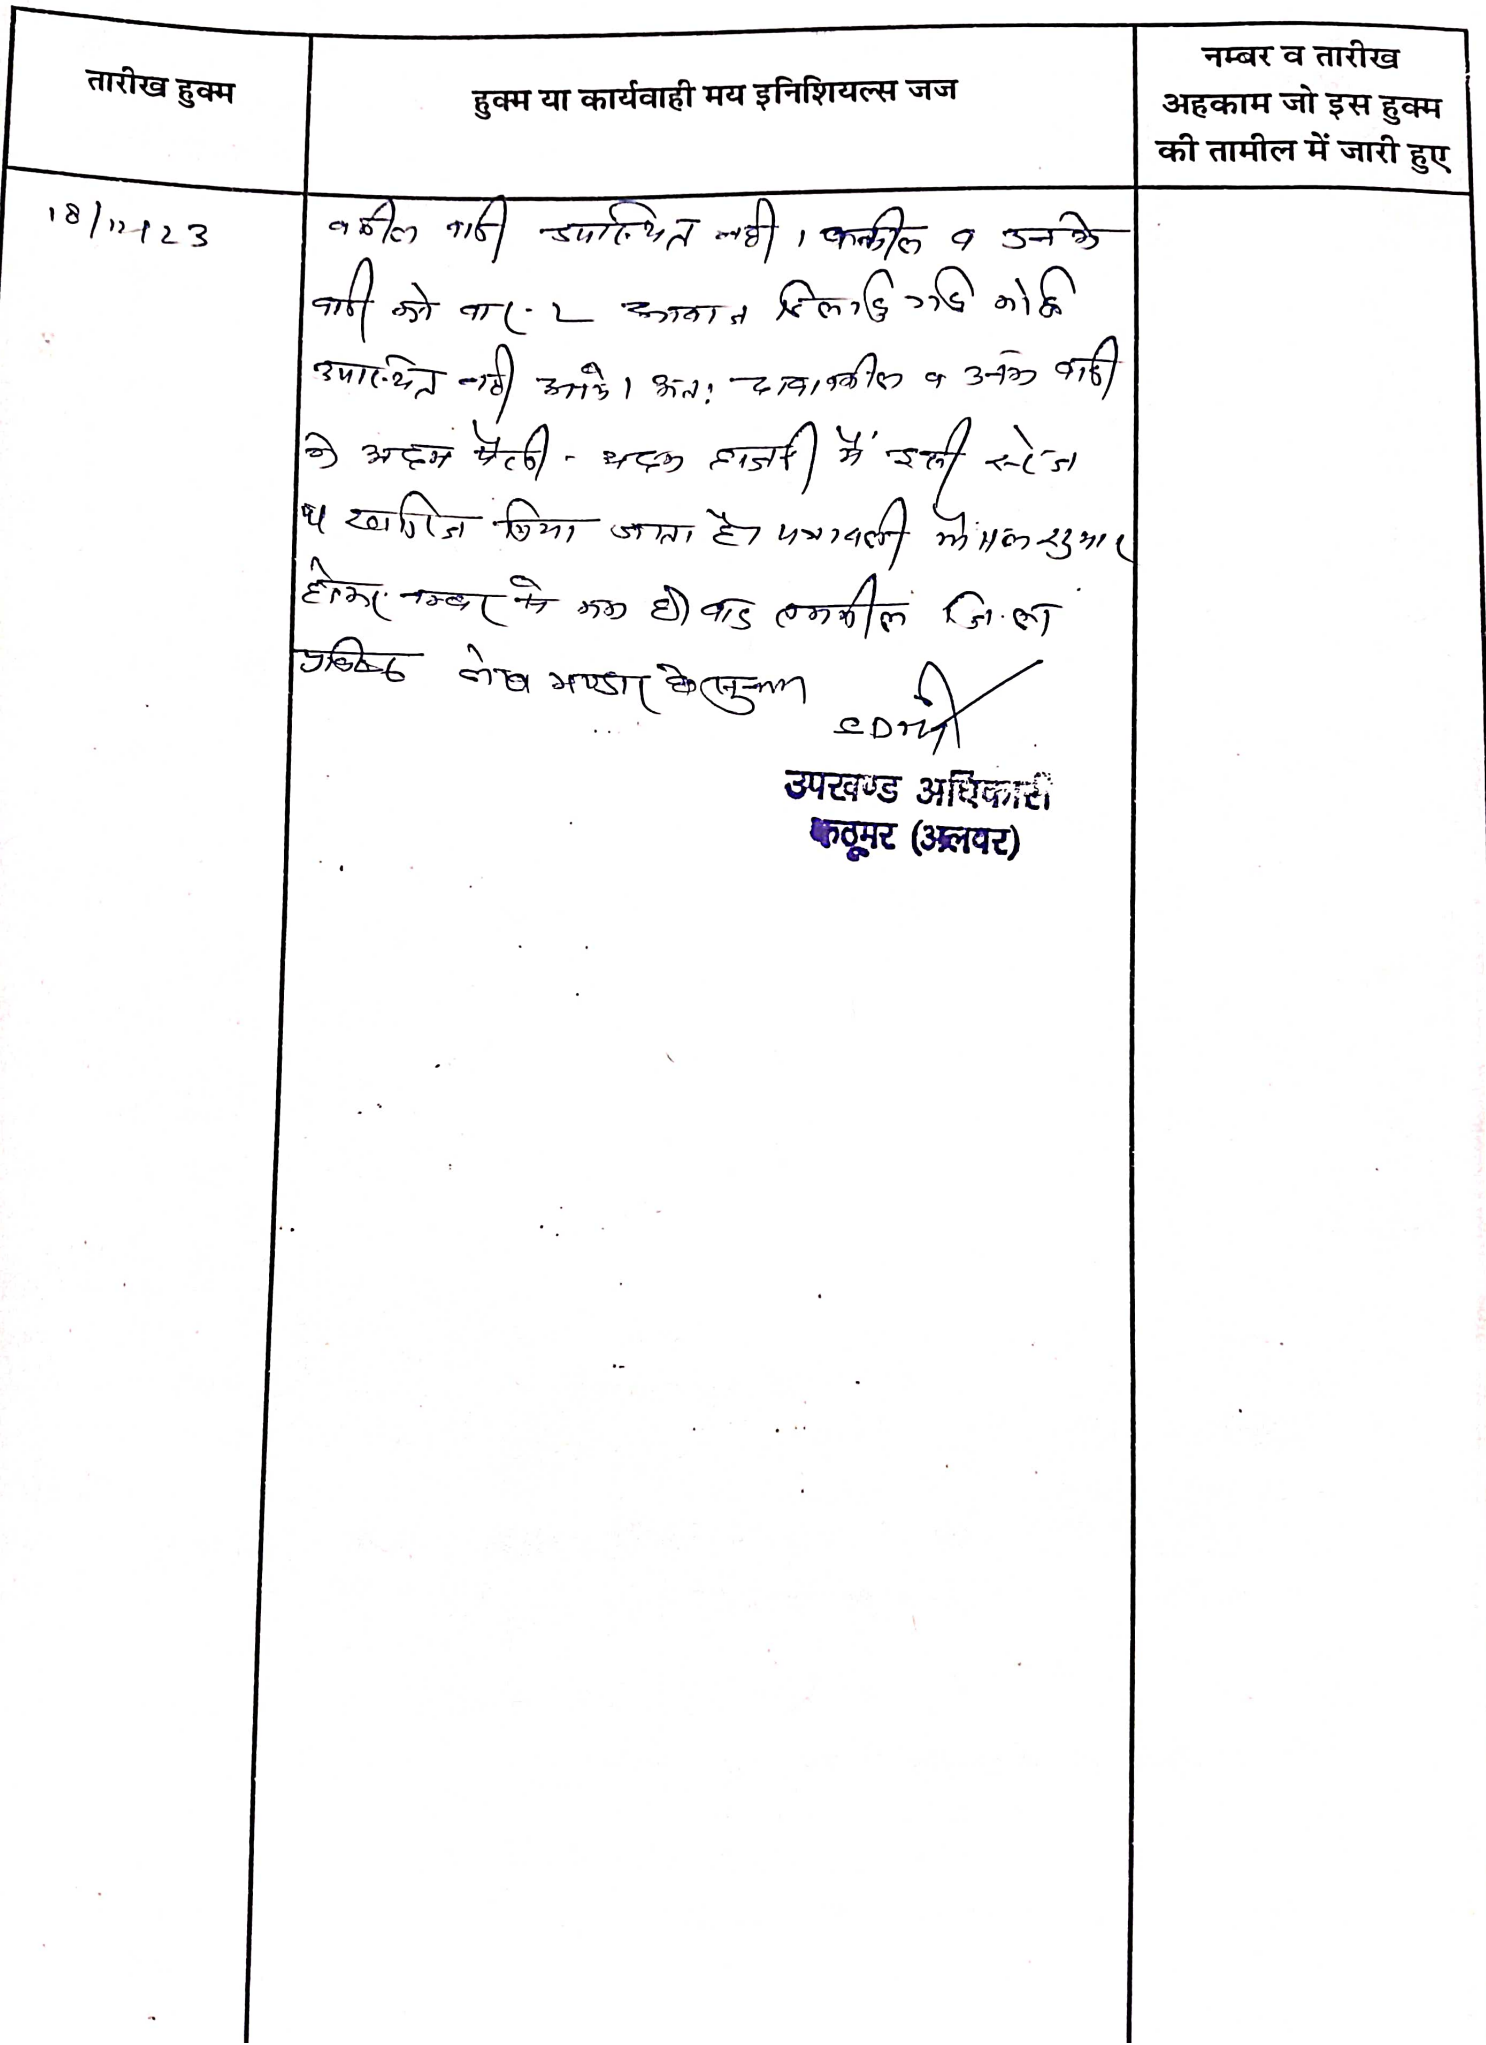 तारीख हुक्म
हुक्म या कार्यवाही मय इनिशियल्स जज
नम्बर व तारीख
अहकाम जो इस हुक्म
की तामील में जारी हुए
18/12/23
वकील वादी उपस्थित नही । वकील व उनके
वादी को बार-2 आवाज दिलाई गई कोई
उपस्थित नही आये। अतः दावा वकील व उनके वादी
के अदम पैरवी - अदम हाजरी में इसी स्टेज
पर खारिज किया जाता है। पत्रावली फैसल शुमार
होकर नम्बर से कम हो बाद तकमील
लेख भण्डार
SDM
उपखण्ड अधिकारी
कठूमर (अलवर)